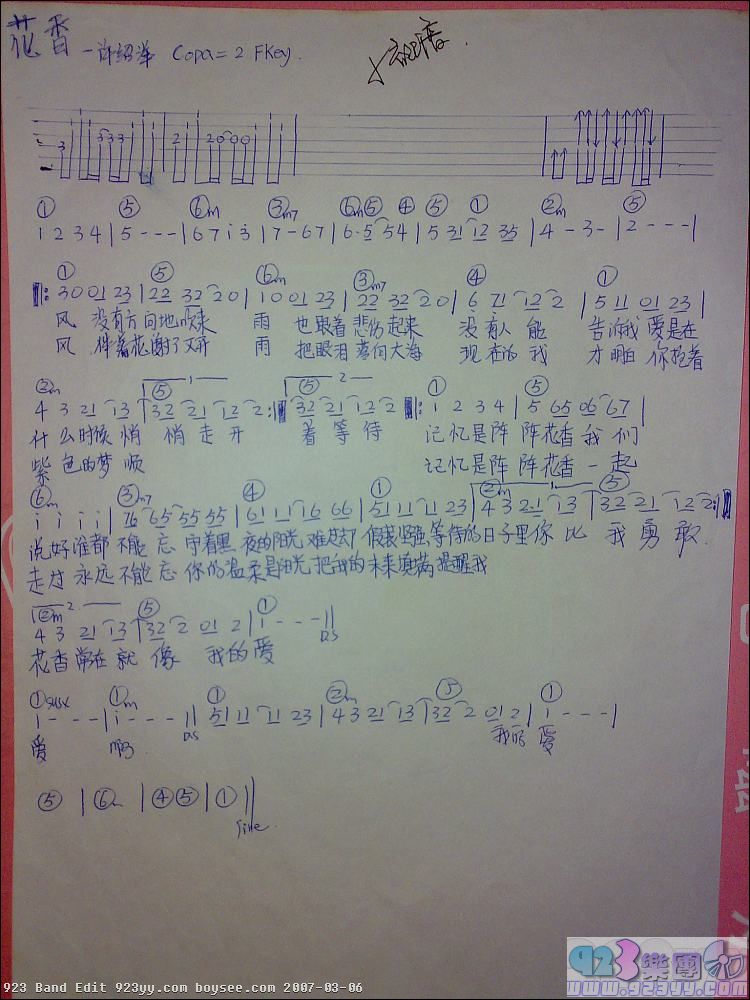 花香 -许绍洋 Copa=2 FKey.
① ⑤ ⑥m ③m7 ⑥m⑤ ④ ⑤ ① ②m ⑤
1 2 3 4 | 5 - - - | 6 7 i 3 | 7 - 67 | 6· 5 54 | 5 31 12 35 | 4 - 3 - | 2 - - - |
① ⑤ ⑥m ③m7 ④ ①
‖: 30 01 23 | 22 32 20 | 10 01 23 | 22 32 20 | 6 71 12 2 | 5 11 01 23 |
风 没有方向地吹来 雨 也跟着悲伤起来 没有人能 告诉我 爱是在
风 伴着花谢了又开 雨 把眼泪落向大海 现在的我 才明白 你抱着
②m ⑤ 1 ⑤ 2 ① ⑤
4 3 21 13 | 32 21 12 2 :‖ 32 21 12 2 ‖: 1 2 3 4 | 5 65 06 67 |
什么时候悄 悄走开 着等待 记忆是阵阵花香 我们
紫色的梦 顺 记忆是阵阵花香 一起
⑥m ③m7 ④ ① ②m 1 ⑤
i i i i | 76 65 55 55 | 61 11 16 66 | 51 11 11 23 | 4 3 21 13 | 32 21 12 2 :‖
说好谁都不能忘 守着黑夜的阳光 难过了假装坚强 等待的日子里你比 我勇敢
走过永远不能忘 你的温柔是阳光 把我的未来填满 提醒我
②m 2 ⑤ ①
4 3 21 13 | 32 2 01 2 | i - - - ‖ D.S
花香常在就像 我的爱
①sus4 ①m ① ②m ⑤ ①
i - - - | i - - - ‖ D.S 51 11 11 23 | 4 3 21 13 | 32 2 01 2 | i - - - |
爱 啊 我的 爱
⑤ | ⑥m | ④⑤ | ① ‖
Fine.
923 Band Edit 923yy.com boysee.com 2007-03-06
923樂團
www.923yy.com